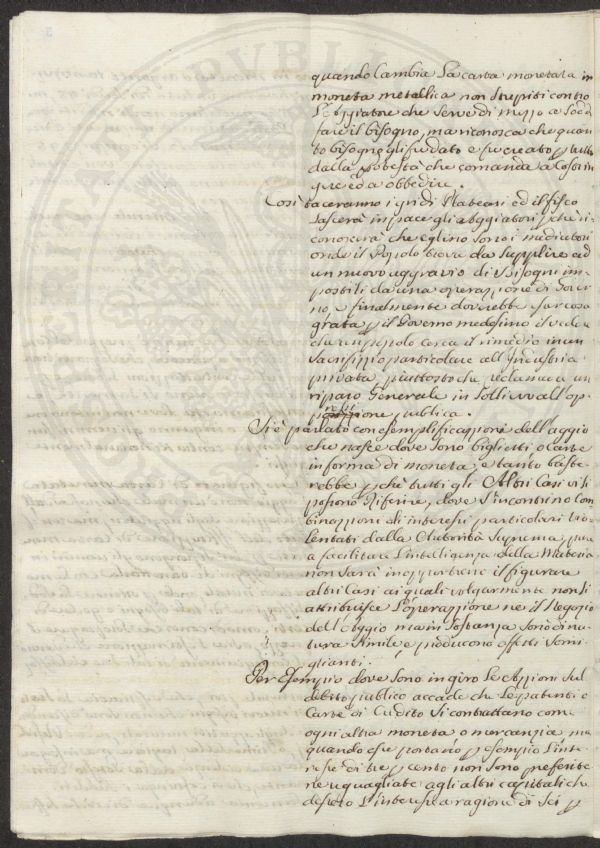 quando cambia la carta monetata in
moneta metallica non strepiti contro
l'Aggiatore che serve di mezzo a sod
fare il bisogno, ma riconosca che quan
to bisogno gli fu dato e fu creato p tutto
dalla potestà che comanda a cosi in
que ed a obbedire.
Così taceranno i gridi Plateari ed il fisco
lascerà in pace gli aggiatori p che ri
conoscerà che eglino sono i mediatori
onde il Popolo trova da supplire ad
un nuovo aggravio di bisogni im
postili da una operazione di Gover
no, e finalmente dovrebbe esser cosa
grata p il Governo medesimo il vede
che un popolo cerca il rimedio in un
sacrifizio particolare all'Industria
privata piuttosto che reclamare un
riparo Generale in sollievo all'op
pressione publica.
Si è parlato con esemplificazione dell'aggio
che nasce dove sono biglietti o carte
in forma di moneta, e tanto baste
rebbe p che tutti gli Altri Casi vi si
possono riferire, dove s'incontrino com
binazioni di interessi particolari vio
lentati dalla Autorità Suprema, pure
a facilitare l'intelligenza della Materia
non sarà inopportuno il figurare
altri casi ai quali volgarmente non si
attribuisce l'operazione ne il Negozio
dell'Aggio ma in sostanza sono di na
tura simile e producono effetti somi
glianti.
Per Esempio dove sono in giro le Azzioni sul
debito publico accade che le patenti o
Carte di Credito si contrattano come
ogni altra moneta o mercanzia ma
quando esse portano p esempio l'inte
resse di tre p cento non sono preferite
ne uguagliate agli altri capitali che
desero l'interesse a ragione di sei p